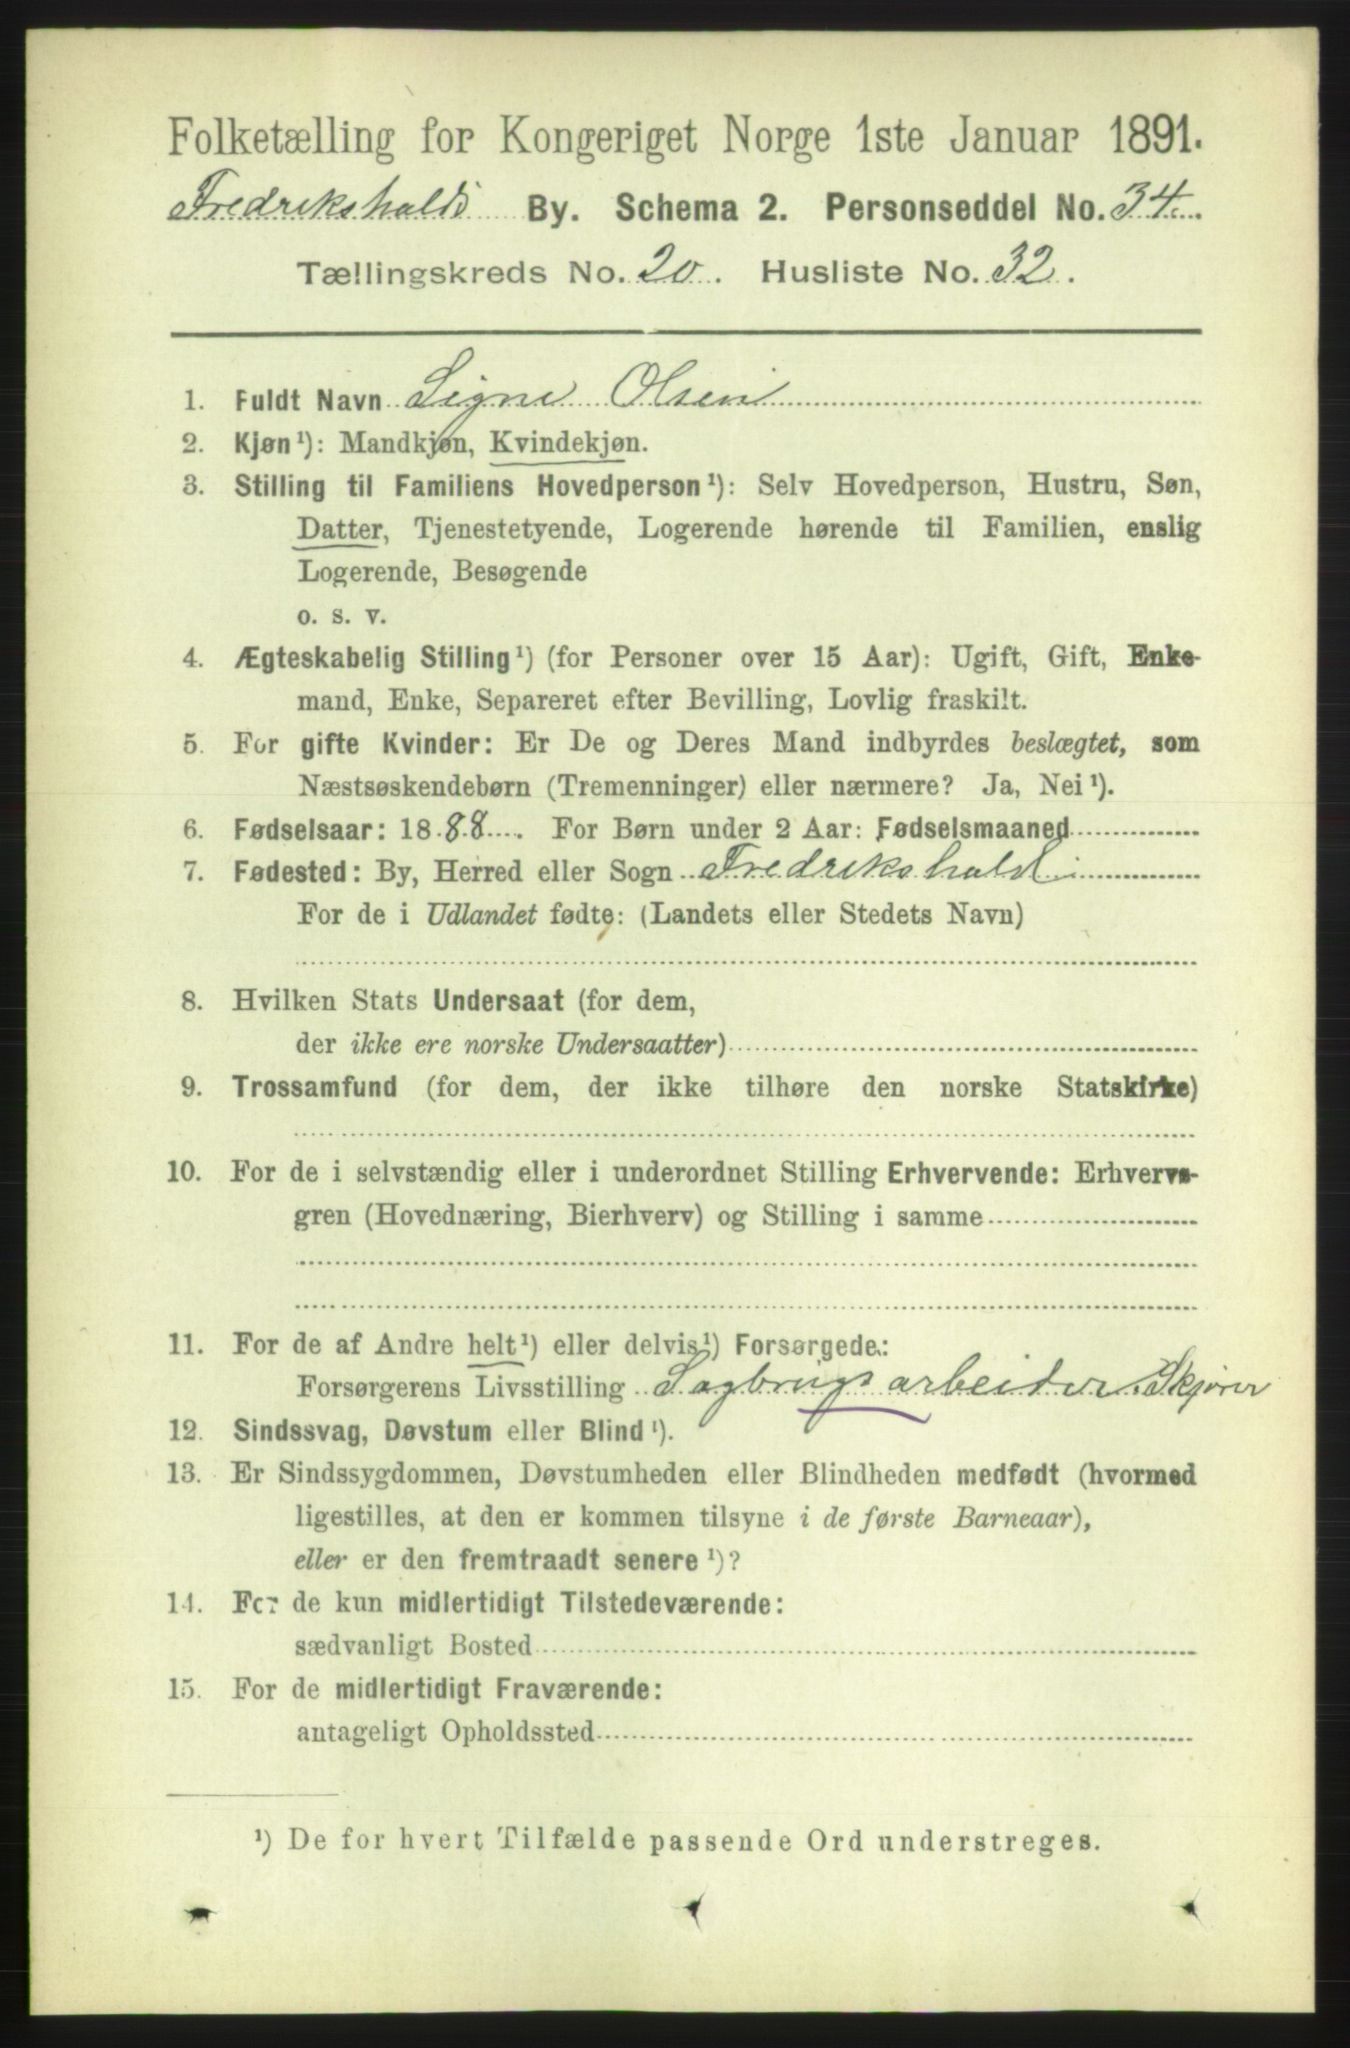 Folketælling for Kongeriget Norge 1ste Januar 1891.
Fredrikshalds By. Schema 2. Personseddel No. 34.
Tællingskreds No. 20. Husliste No. 32.
1. Fuldt Navn Signe Olsen
2. Kjøn¹): Mandkjøn, Kvindekjøn.
3. Stilling til Familiens Hovedperson¹): Selv Hovedperson, Hustru, Søn,
Datter, Tjenestetyende, Logerende hørende til Familien, enslig
Logerende, Besøgende
o. s. v.
4. Ægteskabelig Stilling¹) (for Personer over 15 Aar): Ugift, Gift, Enke-
mand, Enke, Separeret efter Bevilling, Lovlig fraskilt.
5. For gifte Kvinder: Er De og Deres Mand indbyrdes beslægtet, som
Næstsøskendebørn (Tremenninger) eller nærmere? Ja, Nei¹).
6. Fødselsaar: 1888. For Børn under 2 Aar: Fødselsmaaned
7. Fødested: By, Herred eller Sogn Fredrikshald
For de i Udlandet fødte: (Landets eller Stedets Navn)
8. Hvilken Stats Undersaat (for dem,
der ikke ere norske Undersaatter)
9. Trossamfund (for dem, der ikke tilhøre den norske Statskirke)
10. For de i selvstændig eller i underordnet Stilling Erhvervende: Erhvervs-
gren (Hovednæring, Bierhverv) og Stilling i samme
11. For de af Andre helt¹) eller delvis¹) Forsørgede:
Forsørgerens Livsstilling Sagbrugsarbeider. Skjører
12. Sindssvag, Døvstum eller Blind¹).
13. Er Sindssygdommen, Døvstumheden eller Blindheden medfødt (hvormed
ligestilles, at den er kommen tilsyne i de første Barneaar),
eller er den fremtraadt senere¹)?
14. For de kun midlertidigt Tilstedeværende:
sædvanligt Bosted
15. For de midlertidigt Fraværende:
antageligt Opholdssted
¹) De for hvert Tilfælde passende Ord understreges.